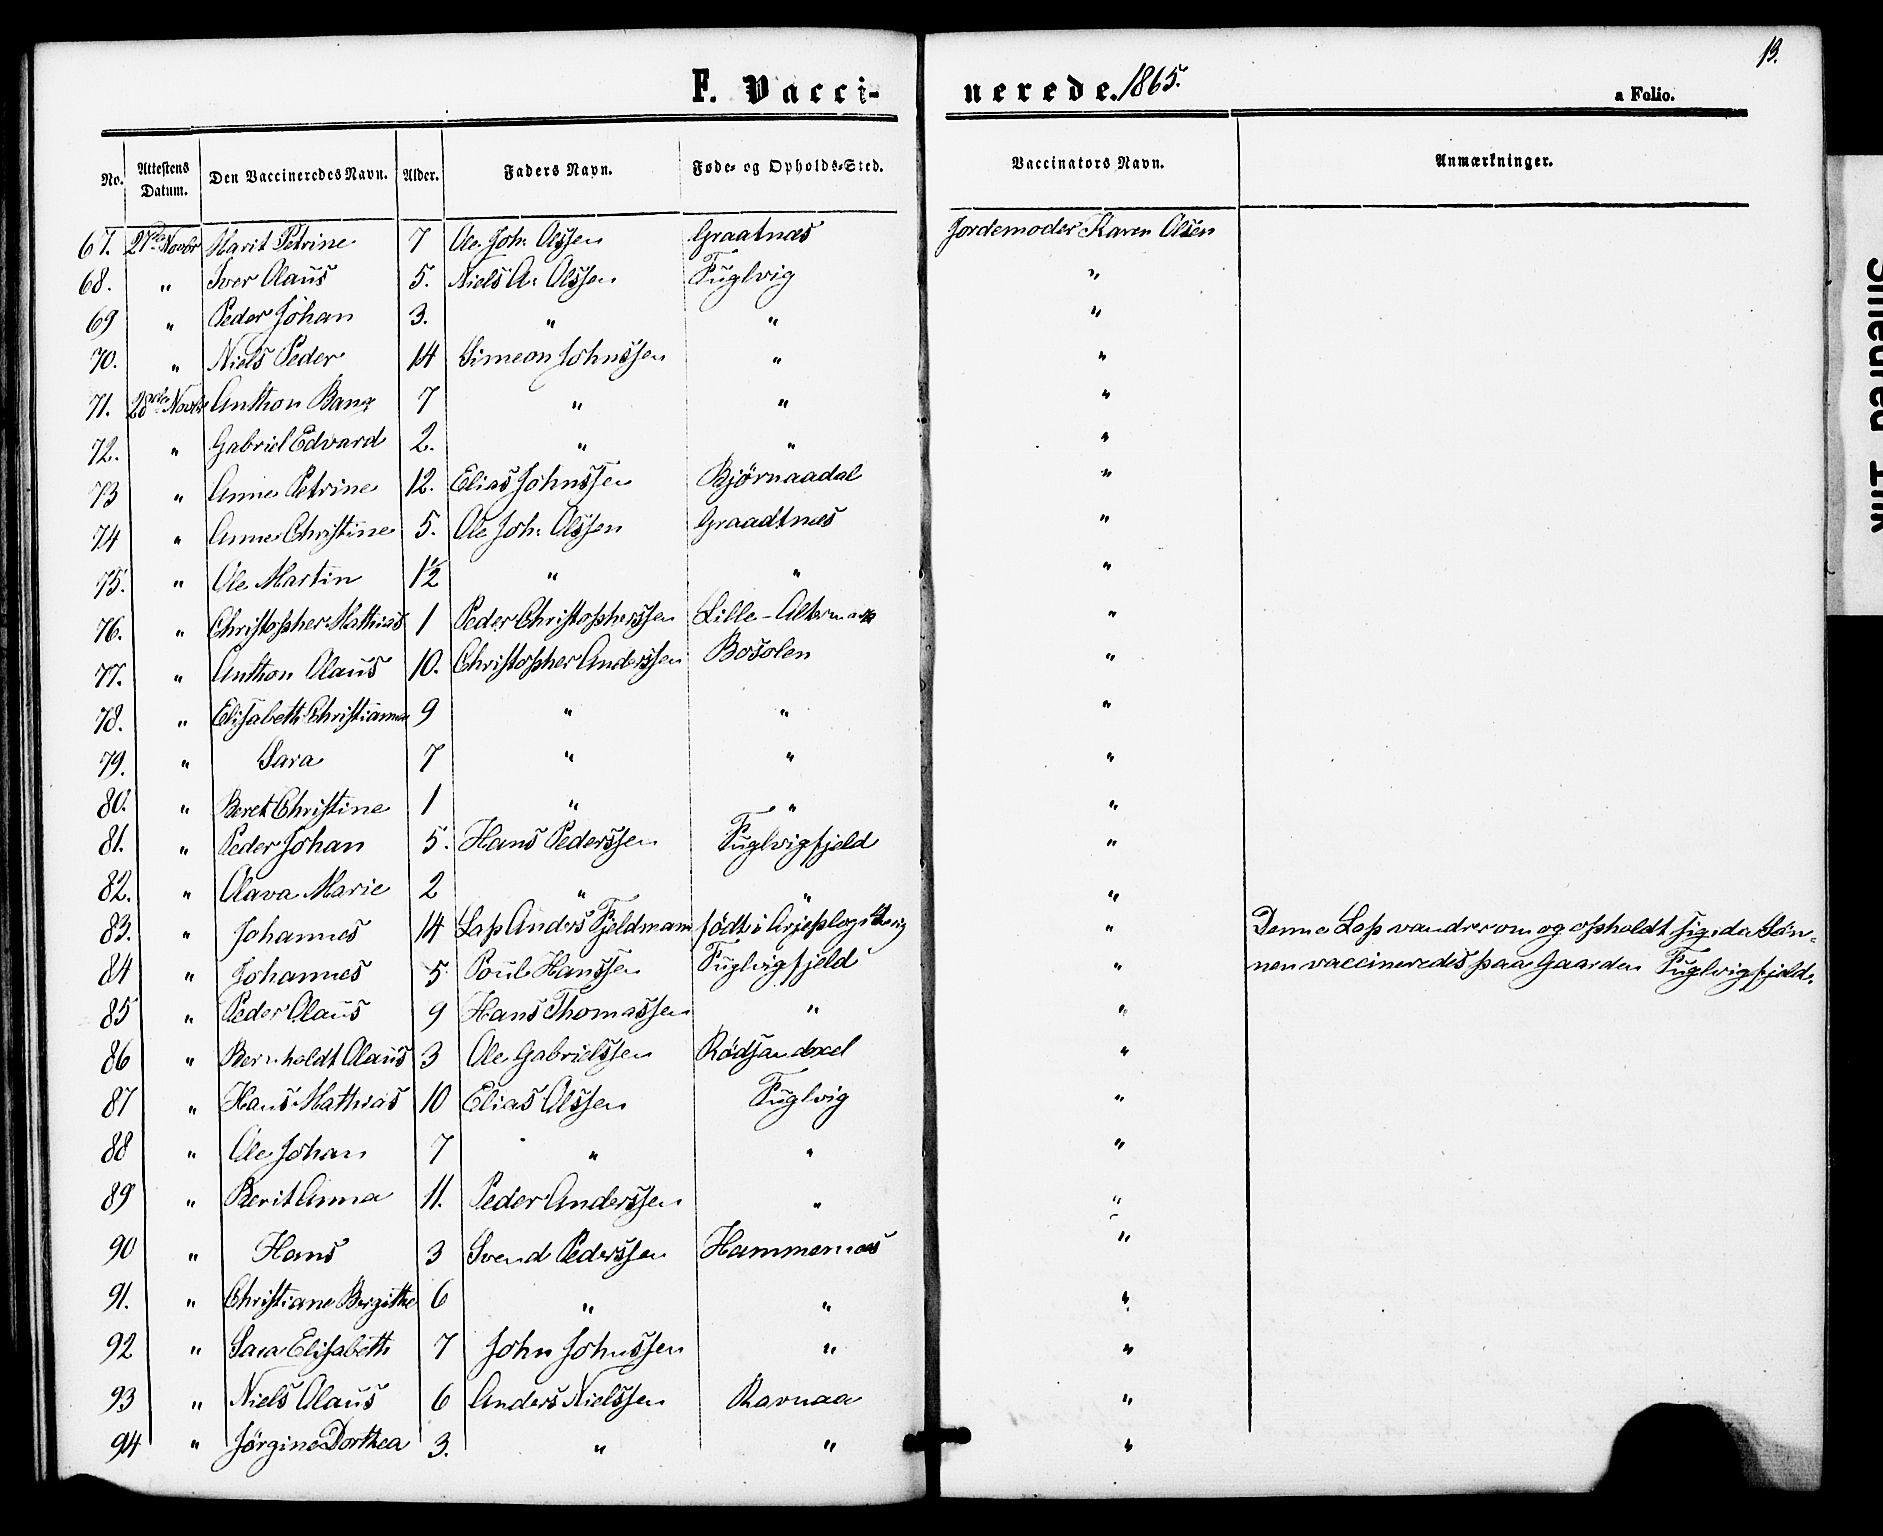 13.
F. Vaccinerede. 1865.
a Folio.
No. Attestens Datum. Den Vaccineredes Navn. Alder. Faders Navn. Føde- og Opholds-Sted. Vaccinators Navn. Anmærkninger.
67. 27de Novbr Marit Petrine 7 Ole Joh. Olssen Graatnæs Jordemoder Karen Olsen
68. " Iver Olaus 5. Niels A. Olssen Fuglvig "
69 " Peder Johan 3. " " "
70. " Niels Peder 14 Simeon Johnssen " "
71. 28de Novbr Anthon Bang 7 " " "
72. " Gabriel Edvard 2. " " "
73 " Anne Petrine 12. Elias Johnssen Bjørnaadal "
74 " Anne Christine 5. Ole Joh. Olssen Graadtnæs "
75. " Ole Martin 1½ " " "
76. " Christopher Mathias 1 Peder Christophersen Lille-Altermark "
77. " Anthon Olaus 10. Christopher Anderssen Bosolen "
78. " Elisabeth Christianna 9 " " "
79. " Sara 7 " " "
80. " Beret Christine 1 " " "
81. " Peder Johan 5. Hans Pederssen Fuglvigfjeld "
82. " Olava Marie 2 " " "
83. " Johannes 14 Lap Anders Fjeldmann født i Arjeplog Sverig " Denne Lap vandrer om og opholdt sig da Søn-
84 " Johannes 5. Poul Hanssen Fuglvigfjeld " nen vaccineredes paa Gaarden Fuglvigfjeld.
85 " Peder Olaus 9 Hans Thomassen " "
86 " Bernholdt Olaus 3 Ole Gabrielssen Rødsandxel "
87 " Hans Mathias 10 Elias Olssen Fuglvig "
88 " Ole Johan 7 " " "
89 " Berit Anna 11. Peder Anderssen " "
90 " Hans 3 Svend Pederssen Hammernæs "
91. " Christiane Bergithe 6 " " "
92 " Sara Elisabeth 7 John Johnssen " "
93 " Niels Olaus 6 Anders Nielssen Ravnaa "
94 " Jørgine Dorthea 3. " " "